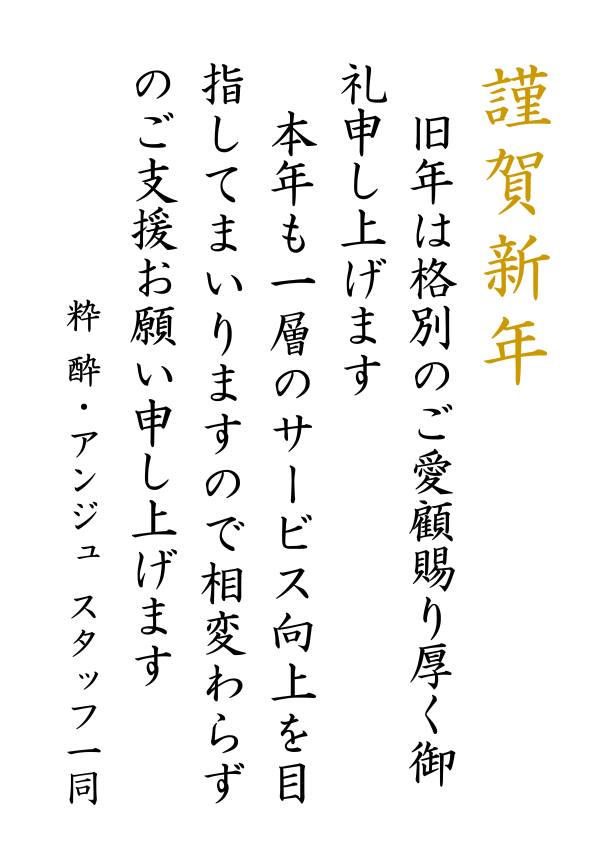 謹賀新年
旧年は格別のご愛顧賜り厚く御
礼申し上げます
本年も一層のサービス向上を目
指してまいりますので相変わらず
のご支援お願い申し上げます
粋 酔・アンジュ スタッフ一同